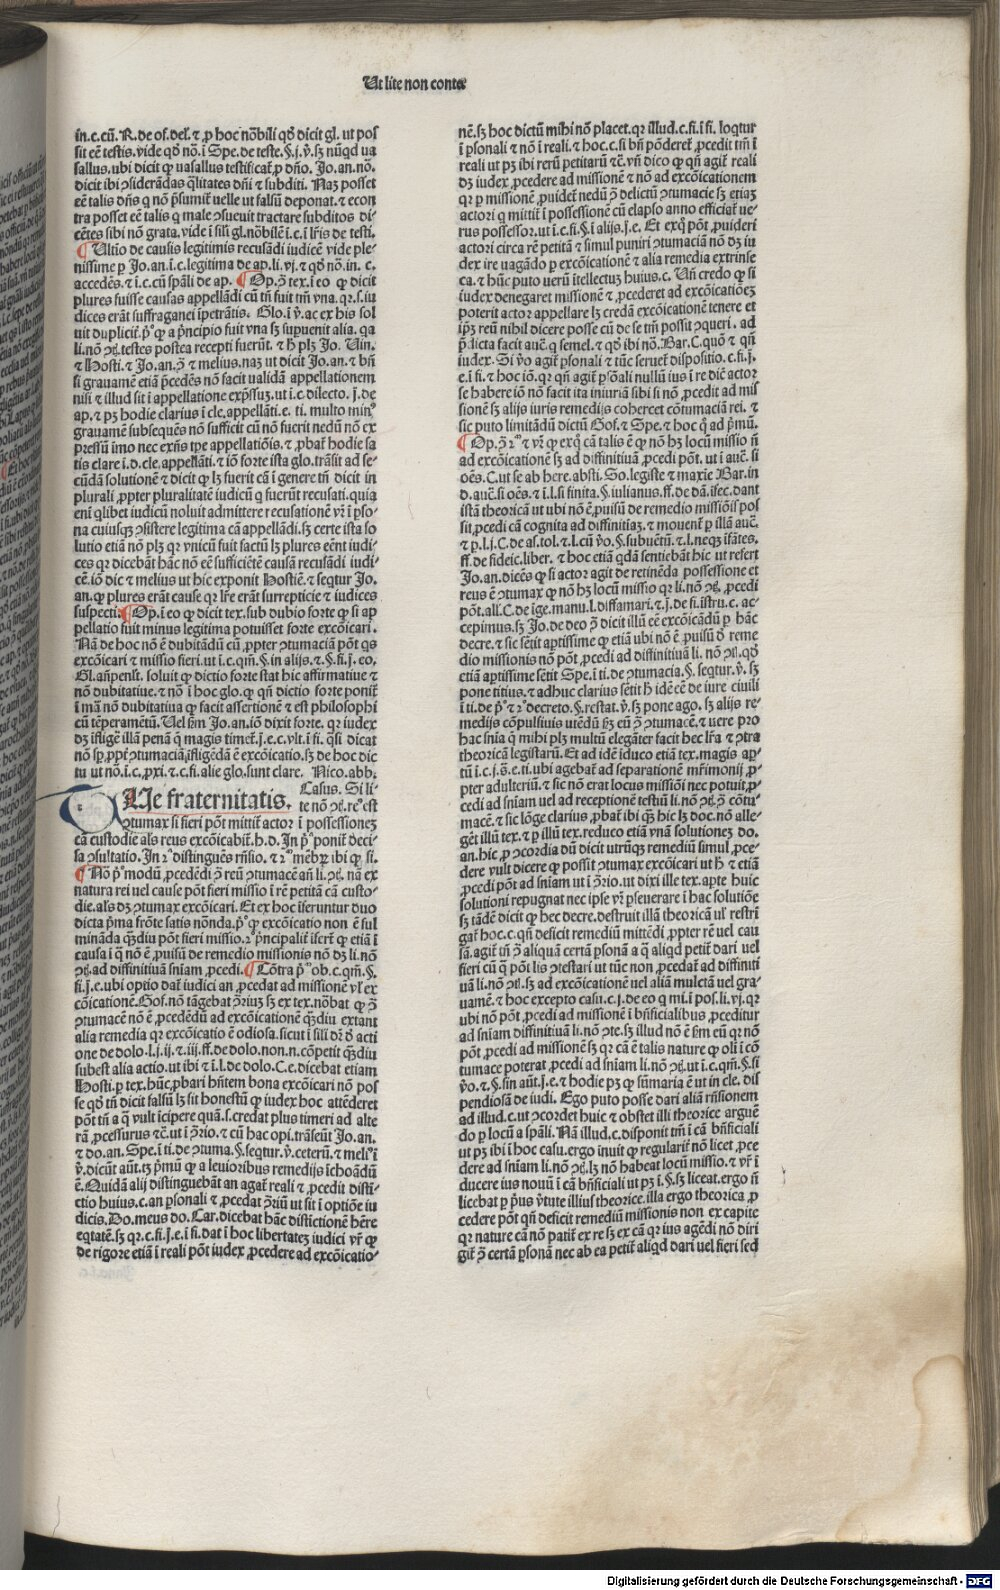 Ut lite non conteſ.
in.c.cū.R.de of.del.⁊ ꝓ hoc nōbili qđ dicit gl. ut poſ
ſit eē teſtis.vide qđ nō.ī Spe.de teſte.§.j.ꝟ.ſꝫ nūqd ua
ſallus.ubi dicit ꝙ uaſallus teſtificat̄ ꝓ dño. Jo.an.nō.
dicit ibi ꝯſiderādas q̄litates dñi ⁊ ſubditi. Naꝫ poſſet
eē talis dñs q nō p̄ſumit̄ velle ut falſū deponat.⁊ econ
tra poſſet eē talis q male ↄſueuit tractare ſubditos di-
cētes ſibi nō grata.vide ī ſili gl.nōbilē ī.c.ī lr̄is de teſti.
Ultīo de cauſis legitimis recuſādi iudicē vide ple-
niſſime ꝑ Jo.an.ī.c.legitima de ap.li.vj.⁊ qđ nō.in.c.
accedēs.⁊ ī.c.cū ſpāli de ap. Op.ꝯ̄ tex.ī eo ꝙ dicit
plures fuiſſe cauſas appellādi cū tn̄ fuit tm̄ vna.qꝛ.ſ.iu
dices erāt ſuffraganei īpetrātis. Glo.ī ꝟ.ac ex his ſol
uit dupliciť.p̊ ꝙ a p̄ncipio fuit vna ſꝫ ſupuenit alia.qa
li.nō ꝯt̄.teſtes poſtea recepti fuerūt.⁊ h̄ plꝫ Jo. Uin.
⁊ Hoſti.⁊ Jo.an.ꝯ̄ ⁊ melius.naꝫ ut dicit Jo.an.⁊ bn̄
ſi grauamē etiā p̄cedēs nō facit ualidā appellationem
niſi ⁊ illud ſit ī appellatione exp̄ſſuꝫ.ut ī.c.dilecto.j.de
ap.⁊ pꝫ hodie clarius ī cle.appellāti.e.ti.multo min⁹
grauamē ſubſequēs nō ſufficit cū nō fuerit nedū nō ex
preſſū īmo nec exñs tp̄e appellatiōis.⁊ ꝓbat̄ hodie ſa
tis clare ī.d.cle.appellāti.⁊ iō forte iſta glo.trāſit ad ſe-
cūdā ſolutionē ⁊ dicit ꝙ lꝫ fuerit cā ī genere tn̄ dicit in
plurali ꝓpter pluralitatē iudicū q fuerūt recuſati.quia
eni qlibet iudicū noluit admittere recuſationē vr̄ ī pſo-
na cuiuſqꝫ ꝯſiſtere legitima cā appellādi.ſꝫ certe iſta ſo
lutio etiā nō plꝫ qꝛ vnicū fuit factū lꝫ plures eēnt iudi-
ces qꝛ dicebāt hāc nō eē ſufficiētē cauſā recuſādi iudi-
cē.iō dic ⁊ melius ut hic exponit Hoſtiē.⁊ ſeqtur Jo.
an.ꝙ plures erāt cauſe qꝛ lr̄e erāt ſurrepticie ⁊ iudices
ſuſpecti. Op.ī eo ꝙ dicit tex.ſub dubio forte ꝙ ſi ap
pellatio fuit minus legitima potuiſſet forte excōicari.
Nā de hoc nō ē dubitādū cū ꝓpter ꝯtumaciā pōt qs
excōicari ⁊ miſſio fieri.ut ī.c.qm̄.§.in alijs.⁊.§.fi.j.eo.
Gl.an̄penl̄t. ſoluit ꝙ dictio forte ſtat hic affirmatiue ⁊
nō dubitatiue.⁊ nō ī hoc glo.ꝙ qn̄ dictio forte ponit̄
ī mā nō dubitatiua ꝙ facit aſſertionē ⁊ eſt philoſophi
cū tēperamētū. Uel ẜm Jo.an.iō dixit forte.qꝛ iudex
dꝫ īfligē illā penā q̄ magis timet̄.j.e.c.vlt.ī fi.q̄ſi dicat
nō ſp̄.ppt̄ ꝯtumaciā.īfligēdā ē excōicatio.ſꝫ de hoc dic
tu ut nō.ī.c.pxi.⁊ c.fi.alie glo.ſunt clare. Nico.abb.
Ne fraternitatis. Caſus. Si li-
te nō ꝯt̄.re⁹ eſt
ꝯtumax ſi fieri pōt mittit̄ actor ī poſſeſſionez
cā cuſtodie als reus excōicabit̄.h.d. In p̊ ponit̄ deci-
ſa ꝯſultatio. In 2⁰ diſtinguēs rn̄ſio.⁊ 2⁰ mēbꝛ̄ ibi ꝙ ſi.
Nō p̊ modū ꝓcedēdi ꝯ̄ reū ꝯtumacē an̄ li.ꝯt̄.nā ex
natura rei vel cauſe pōt fieri miſſio ī rē petitā cā cuſto-
die.als dꝫ ꝯtumax excōicari. Et ex hoc īſeruntur duo
dicta p̄ma frōte ſatis nōnda.p̊ ꝙ excōicatio non ē ful
mināda q̄diu pōt fieri miſſio.2⁰ p̄ncipalit̄ īſert̄ ꝙ etiā ī
cauſa ī q̄ nō ē ꝓuiſū de remedio miſſionis nō dꝫ li.nō
ꝯt̄.ad diffinitiuā ſn̄iam ꝓcedi. Cōtra p̊ ob.c.qm̄.§.
fi.j.e.ubi optio dat̄ iudici an ꝓcedat ad miſſionē vl̄ ex
cōicationē.Goſ.nō tāgebat ꝯ̄riuꝫ ſꝫ ex tex.nōbat ꝙ ꝯ̄
ꝯtumacē nō ē ꝓcedēdū ad excōicationē q̄diu extant
alia remedia qꝛ excōicatio ē odioſa.ſicut ī ſili dr̄ đ acti
one de dolo.l.j.ij.⁊ iij.ff.de dolo.non.n.cōpetit q̄diu
ſubeſt alia actio.ut ibi ⁊ ī.l.de dolo.C.e.dicebat etiam
Hoſti.ꝑ tex.hūc.ꝓbari hn̄tem bona excōicari nō poſ
ſe qđ tn̄ dicit falſū lꝫ ſit honeſtū ꝙ iudex hoc attēderet
pōt tn̄ a q̄ vult īcipere quā.ſ.credat plus timeri ad alte
rā ꝓceſſurus ⁊c̄.ut ī ꝯ̄rio.⁊ cū hac opi.trāſeūt Jo.an.
⁊ do.an.Spe.ī ti.de ꝯtuma.§.ſeqtur.ꝟ.ceterū.⁊ meliꝰ ī
ꝟ.dicūt aūt.tꝫ p̄mū ꝙ a leuioribus remedijs īchoādū
ē.Quidā alij diſtinguebāt an agat̄ reali ⁊ ꝓcedit diſtī-
ctio huius.c.an pſonali ⁊ ꝓcedat ꝯ̄riū ut ſit ī optiōe iu
dicis.Do.meus do.Car.dicebat hāc diſtīctionē hēre
eqtatē.ſꝫ qꝛ.c.fi.j.e.ī fi.dat ī hoc libertatez iudici vr̄ ꝙ
de rigore etiā ī reali pōt iudex ꝓcedere ad excōicatio-
nē.ſꝫ hoc dictū mihi nō placet.qꝛ illud.c.fi.ī fi. loqtur
ī pſonali ⁊ nō ī reali.⁊ hoc.c.ſi bn̄ pōderet̄ ꝓcedit tm̄ ī
reali ut pꝫ ibi rerū petitarū ⁊c̄.vn̄ dico ꝙ qn̄ agit̄ reali
dꝫ iudex ꝓcedere ad miſſionē ⁊ nō ad excōicationem
qꝛ ꝑ miſſionē ꝓuidet̄ nedū ꝯ̄ delictū ꝯtumacie ſꝫ etiaꝫ
actori q mittit̄ ī poſſeſſionē cū elapſo anno efficiat̄ ue-
rus poſſeſſor.ut ī.c.fi.§.ī alijs.j.e. Et exq̊ pōt ꝓuideri
actori circa rē petitā ⁊ ſimul puniri ꝯtumaciā nō dꝫ iu
dex ire vagādo ꝑ excōicationē ⁊ alia remedia extrinſe
ca.⁊ hūc puto uerū ītellectuꝫ huius.c. Un̄ credo ꝙ ſi
iudex denegaret miſſionē ⁊ ꝓcederet ad excōicatiōeꝫ
poterit actor appellare lꝫ credā excōicationē tenere ⁊
ip̄ꝫ reū nihil dicere poſſe cū de ſe tm̄ poſſit ꝯqueri. ad
p̄dicta facit auc̄.q ſemel.⁊ qđ ibi nō.Bar.C.quō ⁊ qn̄
iudex. Si ꝟo agit̄ pſonali ⁊ tūc ſeruet̄ diſpoſitio.c.fi.j.
e.ī fi.⁊ hoc iō.qꝛ qn̄ agit̄ pſōali nullū ius ī re dic̄ actor
ſe habere iō nō facit ita iniuriā ſibi ſi nō ꝓcedit ad miſ
ſionē ſꝫ alijs iuris remedijs cohercet cōtumaciā rei. ⁊
ſic puto limitādū dictū Goſ.⁊ Spe.⁊ hoc q̊ ad p̄mū.
Op.ꝯ̄ 2⁰ ⁊ vr̄ ꝙ exq̊ cā talis ē ꝙ nō hꝫ locū miſſio n̄
ad excōicationē ſꝫ ad diffinitiuā ꝓcedi pōt. ut ī auc̄. ſi
oēs.C.ut ſe ab here.abſti. So.legiſte ⁊ maxīe Bar.in
d.auc̄.ſi oēs.⁊ ī.l.ſi finita.§.iulianus.ff.de dā.īfec.dant
iſtā theoricā ut ubi nō ē ꝓuiſū de remedio miſſiōis poſ
ſit ꝓcedi cā cognita ad diffinitiaꝫ.⁊ mouent̄ ꝑ illā auc̄.
⁊ ꝑ.l.j.C.de aſ.tol.⁊ l.cū ꝟo.§.ſubuētū.⁊.l.neqꝫ īfātes.
ff.de fideic.liber. ⁊ hoc etiā qdā ſentiebāt hic ut refert
Jo.an.dicēs ꝙ ſi actor agit de retinēda poſſeſſione et
reus ē ꝯtumax ꝙ nō hꝫ locū miſſio qꝛ li.nō ꝯt̄. ꝓcedi
pōt.all̄.C.de īge.manu.l.diffamari.⁊ j.de fi.īſtru.c. ac-
cepimus.ſꝫ Jo.de deo ꝯ̄ dicit illū eē excōicādū ꝑ hāc
decre.⁊ ſic ſētit aptiſſime ꝙ etiā ubi nō ē ꝓuiſū đ reme
dio miſſionis nō pōt ꝓcedi ad diffinitiuā li. nō ꝯt̄. qđ
etiā aptiſſime ſētit Spe.ī ti.de ꝯtumacia.§. ſeqtur.ꝟ. ſꝫ
pone titius.⁊ adhuc clarius ſētit h̄ idē cē de iure ciuili
ī ti.de p̊ ⁊ 2⁰ decreto.§.reſtat.ꝟ.ſꝫ pone ago. ſꝫ alijs re-
medijs cōpulſiuis utēdū ſꝫ eū ꝯ̄ ꝯtumacē.⁊ uere pro
hac ſn̄ia q̄ mihi plꝫ multū elegāter facit hec lr̄a ⁊ ꝯtra
theoricā legiſtarū. Et ad idē īduco etiā tex.magis ap-
tū ī.c.j.§.e.ti.ubi agebat̄ ad ſeparationē m̄rimonij ꝓ-
pter adulteriū.⁊ ſic nō erat locus miſſiōi nec potuit ꝓ-
cedi ad ſn̄iam uel ad receptionē teſtiū li.nō ꝯt̄.ꝯ̄ cōtu-
macē.⁊ ſic lōge clarius ꝓbat̄ ibi q̄ꝫ hic lꝫ doc.nō alle-
gēt illū tex.⁊ ꝑ illū tex.reduco etiā vnā ſolutionez do.
an.hic ꝓ ꝯcordia dū dicit utrūqꝫ remediū ſimul ꝓce-
dere vult dicere ꝙ poſſit ꝯtumax excōicari ut h̄ ⁊ etiā
ꝓcedi pōt ad ſn̄iam ut ī ꝯ̄rio.ut dixi ille tex.apte huic
ſolutioni repugnat nec ip̄e vr̄ pſeuerare ī hac ſolutiōe
ſꝫ tādē dicit ꝙ hec decre.deſtruit illā theoricā ul̄ reſtrī
gat̄ hoc.c.qn̄ deficit remediū mittēdi ꝓpter rē uel cau
ſā.agit̄ tn̄ ꝯ̄ aliquā certā pſonā a q̄ aliqd petit̄ dari vel
fieri cū q̄ pōt lis ꝯteſtari ut tūc non ꝓcedat̄ ad diffiniti
uā li.nō ꝯt̄.ſꝫ ad excōicationē uel aliā mulctā vel gra-
uamē.⁊ hoc excepto caſu.c.j.de eo q mi.ī poſ.li.vj.qꝛ
ubi nō pōt ꝓcedi ad miſſionē ī bn̄ficialibus ꝓceditur
ad ſn̄iam diffinitiuā li.nō ꝯte.ſꝫ illud nō ē ẜm eū qꝛ nō
pōt ꝓcedi ad miſſionē ſꝫ qꝛ cā ē talis nature ꝙ oli ī cō
tumace poterat ꝓcedi ad ſn̄iam li.nō ꝯt̄.ut ī.c.qm̄.§.ſi
ꝟo.⁊.§.ſin aūt.j.e.⁊ hodie pꝫ ꝙ ſūmaria ē ut in cle. diſ
pendioſā de iudi. Ego puto poſſe dari aliā rn̄ſionem
ad illud.c.ut ꝯcordet huic ⁊ obſtet illi theorice arguē
do ꝑ locū a ſpāli. Nā illud.c.diſponit tm̄ ī cā bn̄ficiali
ut pꝫ ibi ī hoc caſu.ergo īnuit ꝙ regularit̄ nō licet ꝓce
dere ad ſn̄iam li.nō ꝯt̄.lꝫ nō habeat locū miſſio.⁊ vr̄ ī
ducere ius nouū ī cā bn̄ficiali ut pꝫ ī.§.ſꝫ liceat.ergo n̄
licebat ꝑ p̄us ꝟtute illius theorice.illa ergo theorica ꝓ
cedere pōt qn̄ deficit remediū miſſionis non ex capite
qꝛ nature cā nō patit̄ ex re ſꝫ ex cā qꝛ ius agēdi nō diri
git̄ ꝯ̄ certā pſonā nec ab ea petit̄ aliqd dari vel fieri ſed
Digitalisierung gefördert durch die Deutsche Forschungsgemeinschaft - DFG